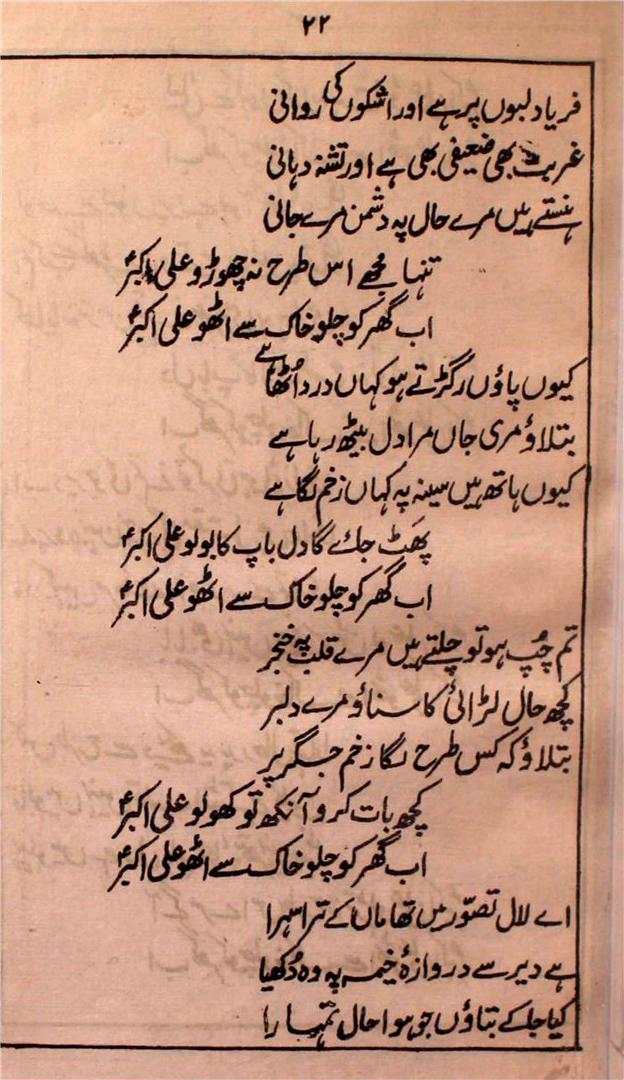 ۲۲
فریاد لبوں پر ہے اور اشکوں کی روانی
غربت بھی ضعیفی بھی ہے اور تشنہ دہانی
ہنستے ہیں مرے حال پہ دشمن مرے جانی
تنہا مجھے اس طرح نہ چھوڑو علی اکبرؑ
اب گھر کو چلو خاک سے اٹھو علی اکبرؑ
کیوں پاؤں رگڑتے ہو کہاں درد اُٹھا ہے
بتلاؤ مری جاں مرا دل بیٹھ رہا ہے
کیوں ہاتھ ہیں سینہ پہ کہاں زخم لگا ہے
پھَٹ جائے گا دل باپ کا بولو علی اکبرؑ
اب گھر کو چلو خاک سے اٹھو علی اکبرؑ
تم چُپ ہو تو چلتے ہیں مرے قلب پہ خنجر
کچھ حال لڑائی کا سناؤ مرے دلبر
بتلاؤ کہ کس طرح لگا زخم جگر پر
کچھ بات کرو آنکھ تو کھولو علی اکبرؑ
اب گھر کو چلو خاک سے اٹھو علی اکبرؑ
اے لال تصوّر میں تھا ماں کے ترا سہرا
ہے دیر سے دروازۂ خیمہ پہ وہ دُکھیا
کیا جا کے بتاؤں جو ہوا حال تمہارا